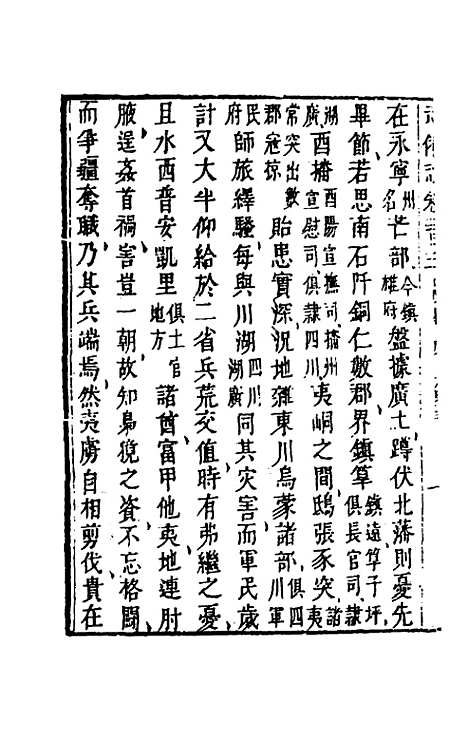 在永寧州名芒部今鎮雄府盤據廣土蹲伏北藩則憂先
畢節若思南石阡銅仁數郡界鎮筸鎮遠筸子坪俱長官司隸
湖廣酉播酉陽宣撫司播州宣慰司俱隸四川夷峒之間鴟張豕突諸夷
常突出數郡寇掠貽患實深況地雜東川烏蒙諸部俱四川軍
民府師旅繹騷每與川湖四川湖廣同其灾害而軍民歲
計又大半仰給於二省兵荒交值時有弗繼之憂
且水西普安凱里俱土官地方諸酋富甲他夷地連肘
腋逞姦首禍害豈一朝故知梟獍之資不忘格鬪
而爭疆奪職乃其兵端焉然夷虜自相剪伐貴在